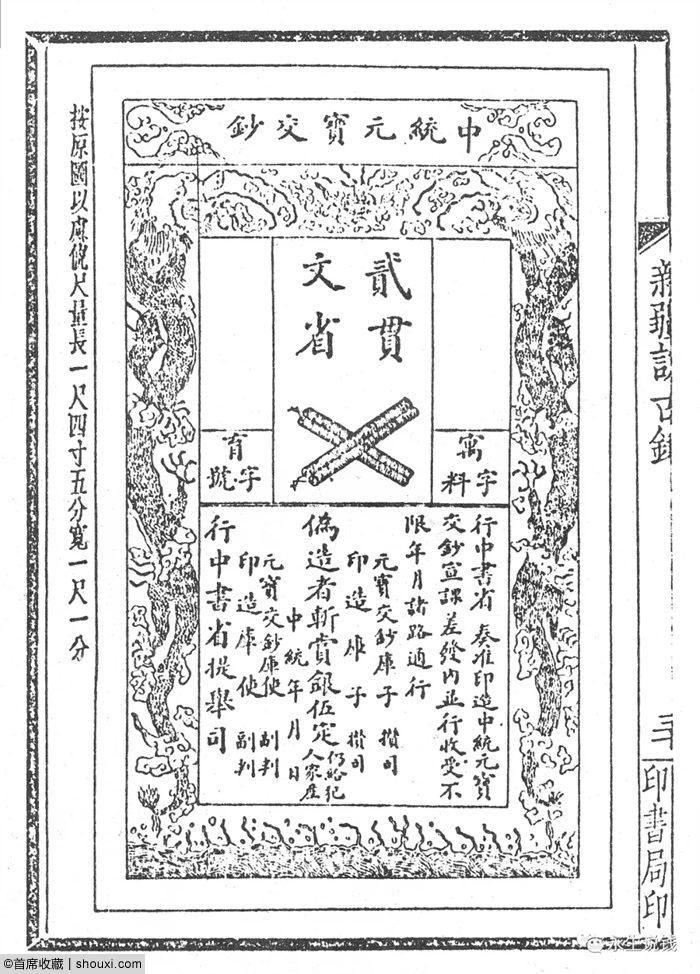 新疆訪古錄
印書局印
中統元寶交鈔
貳貫
文省
字料
字號
行中書省 奏准印造中統元寶
交鈔宣課差發内並行收受不
限年月諸路通行
元寶交鈔庫子 攢司
印造庫子 攢司
偽造者斬賞銀伍定
仍給犯
人家產
中統年月日
元寶交鈔庫使 副判
印造庫使 副判
行中書省提舉司
按原圖以尺量長一尺四寸五分寬一尺一分
永生说钱
©首席收藏 | shouxi.com